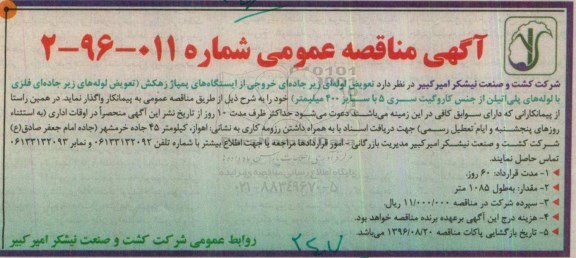 آگهی مناقصه عمومی شماره ۰۱۱-۹۶-۲
شرکت کشت و صنعت نیشکر امیرکبیر در نظر دارد تعویض لوله‌ی زیر جاده‌ای خروجی از ایستگاه‌های پمپاژ زهکش (تعویض لوله‌های زیر جاده‌ای فلزی
با لوله‌های پلی‌اتیلن از جنس کاروگیت سری ۵ با سایز ۴۰۰ میلیمتر) خود را به شرح ذیل از طریق مناقصه عمومی به پیمانکار واگذار نماید. در همین راستا
از پیمانکارانی که دارای سوابق کافی در این زمینه می‌باشند دعوت می‌شود حداکثر ظرف مدت ۱۰ روز از تاریخ نشر این آگهی منحصراً در اوقات اداری (به استثناء
روزهای پنجشنبه و ایام تعطیل رسمی) جهت دریافت اسناد با به همراه داشتن رزومه کاری به نشانی: اهواز، کیلومتر ۴۵ جاده خرمشهر (جاده امام جعفر صادق(ع)
شرکت کشت و صنعت نیشکر امیرکبیر مدیریت بازرگانی - امور قراردادها مراجعه یا جهت اطلاع بیشتر با شماره تلفن ۰۶۱۳۳۱۳۲۰۹۲ و نمابر ۰۶۱۳۳۱۳۲۰۹۳
تماس حاصل نمایند.
۱- مدت قرارداد: ۶۰ روز.
۲- مقدار: به‌طول ۱۰۸۵ متر
۳- سپرده شرکت در مناقصه ۱۱/۰۰۰/۰۰۰ ریال.
۴- هزینه درج این آگهی برعهده برنده مناقصه خواهد بود.
۵- تاریخ بازگشایی پاکات مناقصه ۱۳۹۶/۰۸/۲۰ می‌باشد.
روابط عمومی شرکت کشت و صنعت نیشکر امیرکبیر
پایگاه اطلاع رسانی مناقصه و مزایده
۰۲۱-۸۸۳۴۹۶۷۰-۵